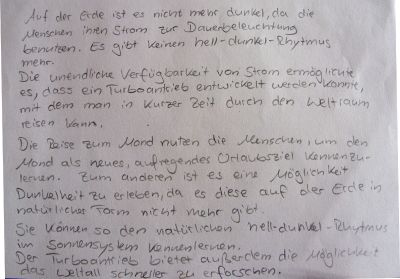 Auf der Erde ist es nicht mehr dunkel, da die
Menschen ihren Strom zur Dauerbeleuchtung
benutzen. Es gibt keinen hell-dunkel-Rhytmus
mehr.
Die unendliche Verfügbarkeit von Strom ermöglichte
es, dass ein Turboantrieb entwickelt werden konnte,
mit dem man in kurzer Zeit durch den Weltraum
reisen kann.
Die Reise zum Mond nutzen die Menschen, um den
Mond als neues, aufregendes Urlaubsziel kennenzu-
lernen. Zum anderen ist es eine Möglichkeit
Dunkelheit zu erleben, da es diese auf der Erde in
natürlicher Form nicht mehr gibt.
Sie können so den natürlichen hell-dunkel-Rhytmus
im Sonnensystem kennenlernen.
Der Turboantrieb bietet außerdem die Möglichkeit
das Weltall schneller zu erforschen.